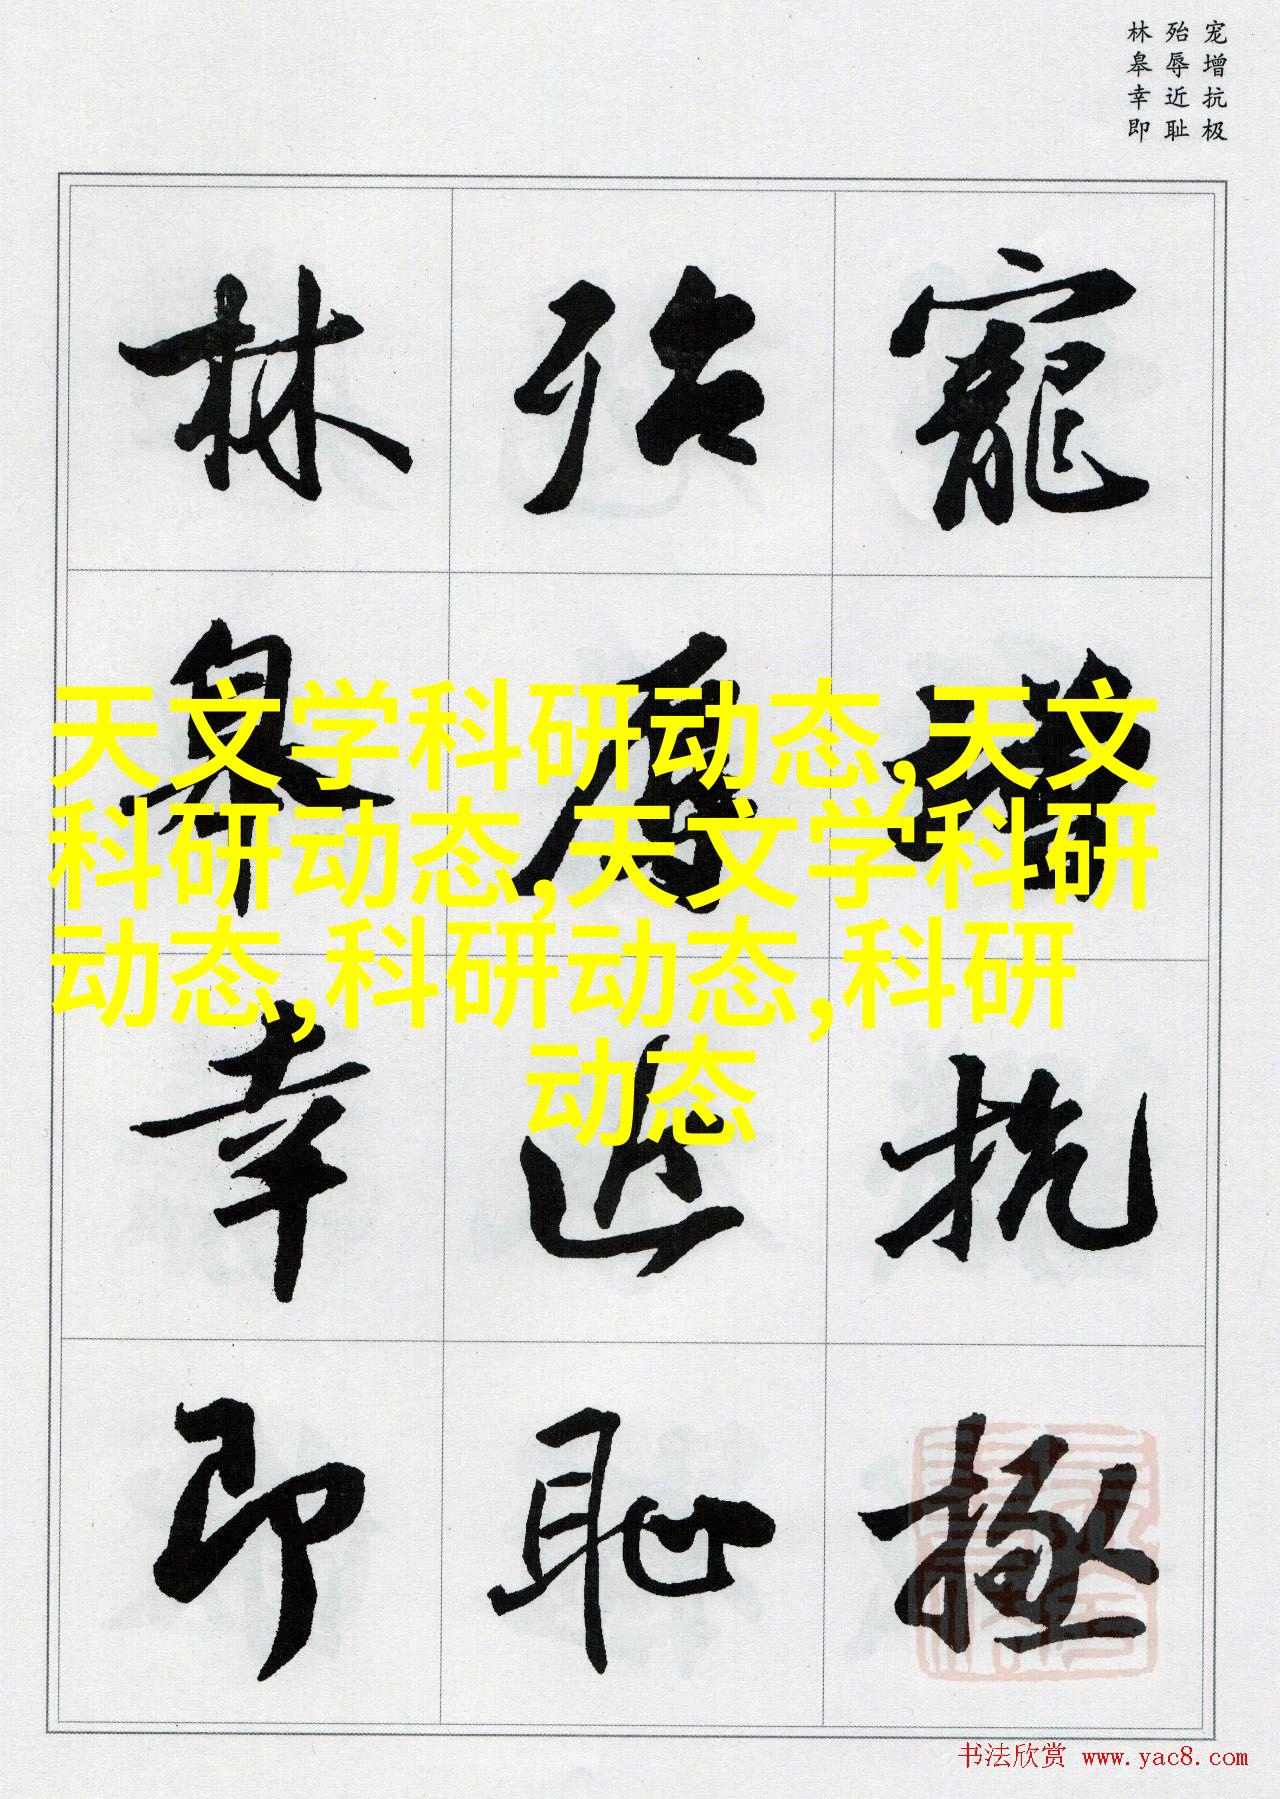 宠增抗极
殆辱近耻
林皋幸即
寵增抗極
殆辱近耻
林皋幸即
天文学科研动态,天文
科研动态,天文学科研
动态,科研动态,科研
动态
书法欣赏 www.yac8.com